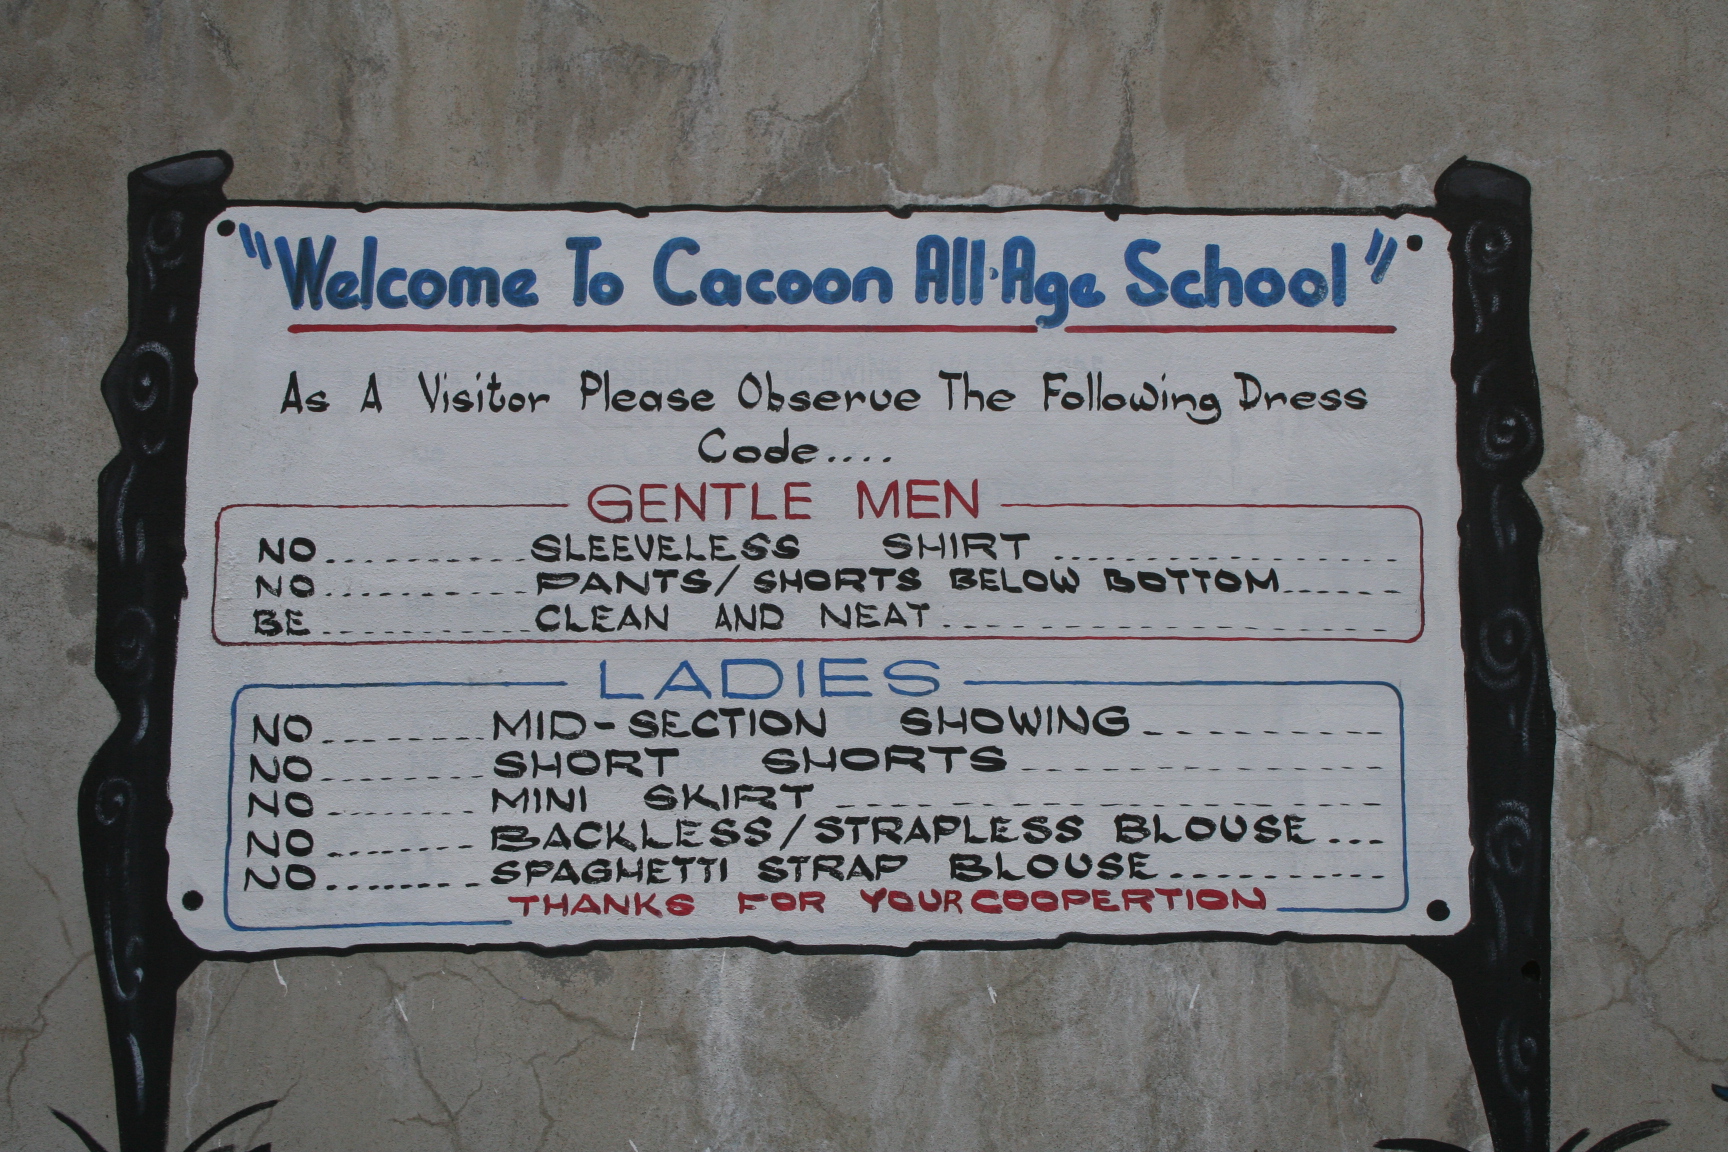 "Welcome To Cacoon All-Age School"
As A Visitor Please Observe The Following Dress
Code....
GENTLE MEN
NO............SLEEVELESS SHIRT....................
NO............PANTS/SHORTS BELOW BOTTOM.......
BE............CLEAN AND NEAT........................
LADIES
NO.........MID-SECTION SHOWING..........
NO.........SHORT SHORTS..................
NO.........MINI SKIRT......................
NO.........BACKLESS/STRAPLESS BLOUSE...
NO.........SPAGHETTI STRAP BLOUSE...........
THANKS FOR YOUR COOPERTION